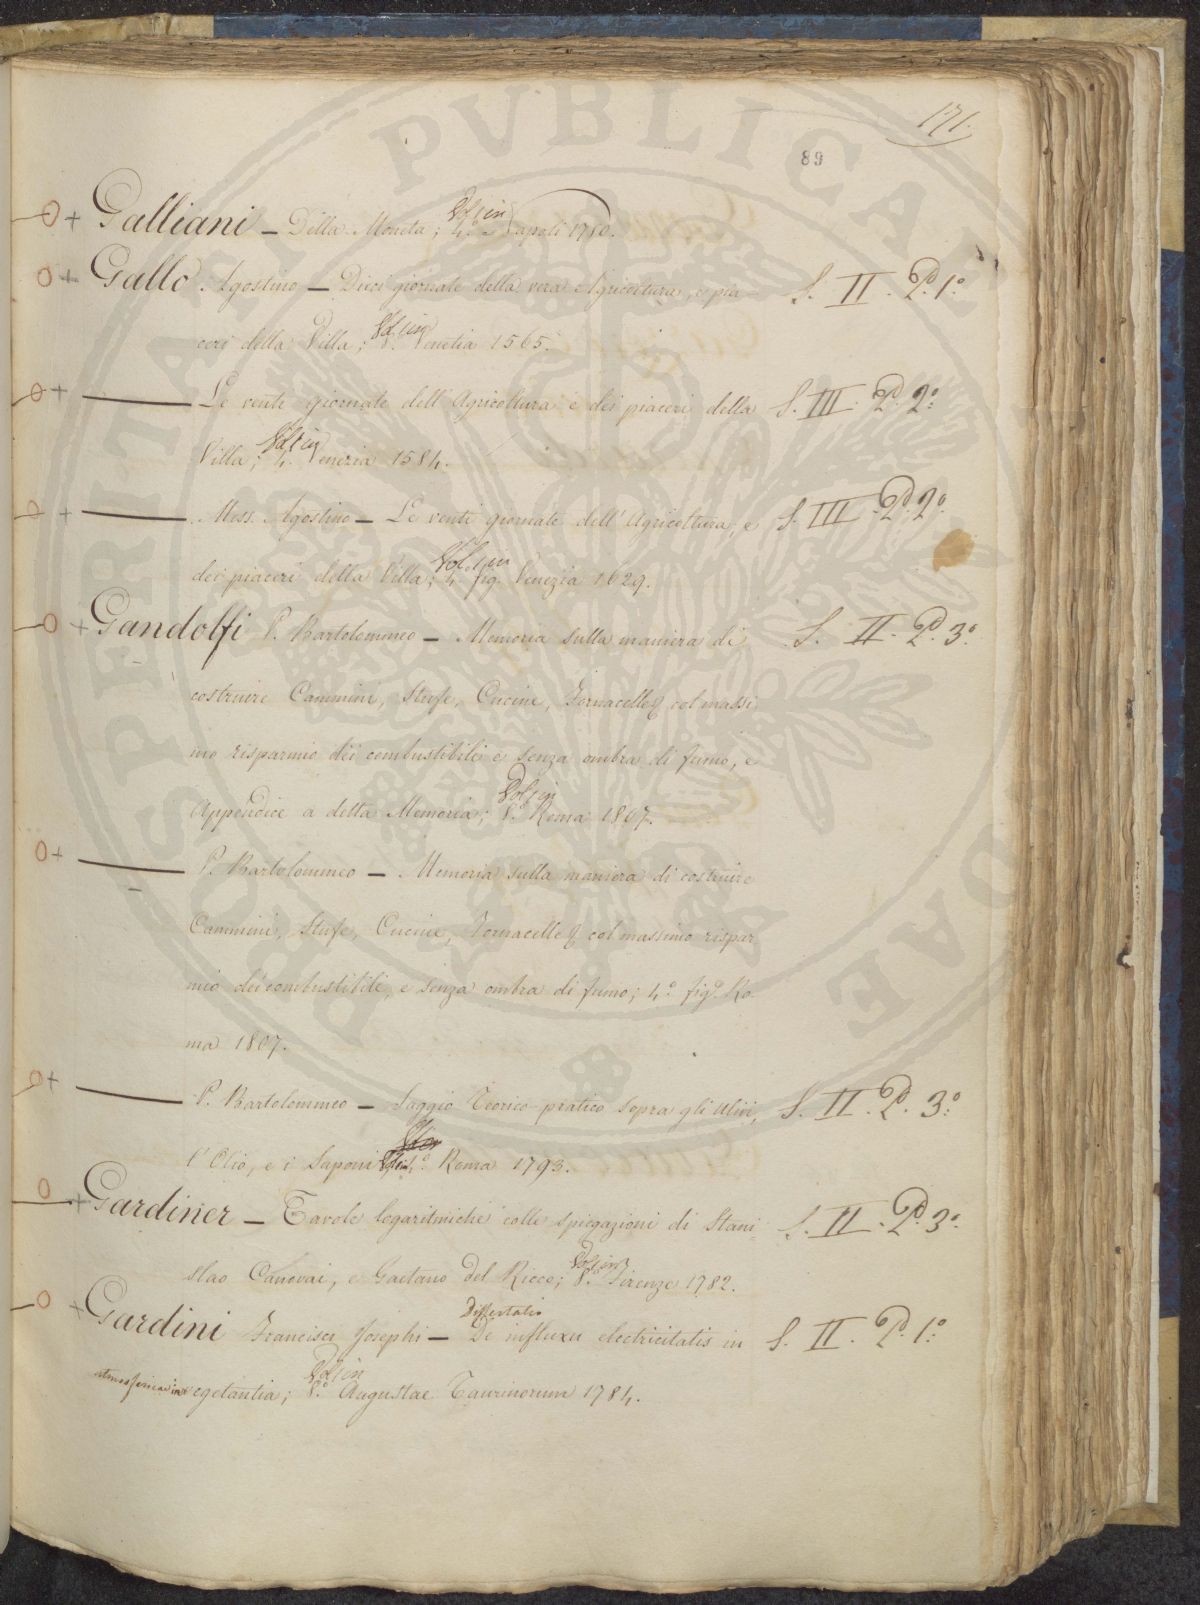 171.
89
Galliani – Della Moneta; Vol. in 4.° Napoli 1750.
Gallo Agostino – Dieci giornate della vera Agricoltura, e pia- S. II. Pd. 1.°
ceri della Villa; Vol. in 8.° Venetia 1565.
Le venti giornate dell'Agricoltura e dei piaceri della S. III. Pd. 2.°
Villa; Vol. in 4.° Venezia 1584.
Mess. Agostino – Le venti giornate dell'Agricoltura, e S. III. Pd. 2.°
dei piaceri della Villa; Vol. in 4. fig. Venezia 1629.
Gandolfi P. Bartolommeo – Memoria sulla maniera di S. II. Pd. 3.°
costruire Cammini, Stufe, Cucine, Fornacelle col massi
mo risparmio dei combustibili e senza ombra di fumo, e
Appendice a detta Memoria; Vol. in 8.° Roma 1807.
P. Bartolommeo – Memoria sulla maniera di costruire
Cammini, Stufe, Cucine, Fornacelle col massimo rispar
mio dei combustibili, e senza ombra di fumo; 4.° fig.° Ro-
ma 1807.
P. Bartolommeo – Saggio Teorico-pratico sopra gli Ulivi, S. II. Pd. 3.°
l'Olio, e i Saponi Vol. in 4.° Roma 1793.
Gardiner – Tavole logaritmiche colle spiegazioni di Stani= S. II. Pd. 3.°
slao Canovai, e Gaetano del Ricco; Vol. in 8.° Firenze 1782.
Gardini Francisci Josephi – Dissertatio De influxu electricitatis in S. II. Pd. 1.°
atmosfericae in vegetantia; Vol. in 8.° Augustae Taurinorum 1784.
PROSPERITATIS PVBLICAE